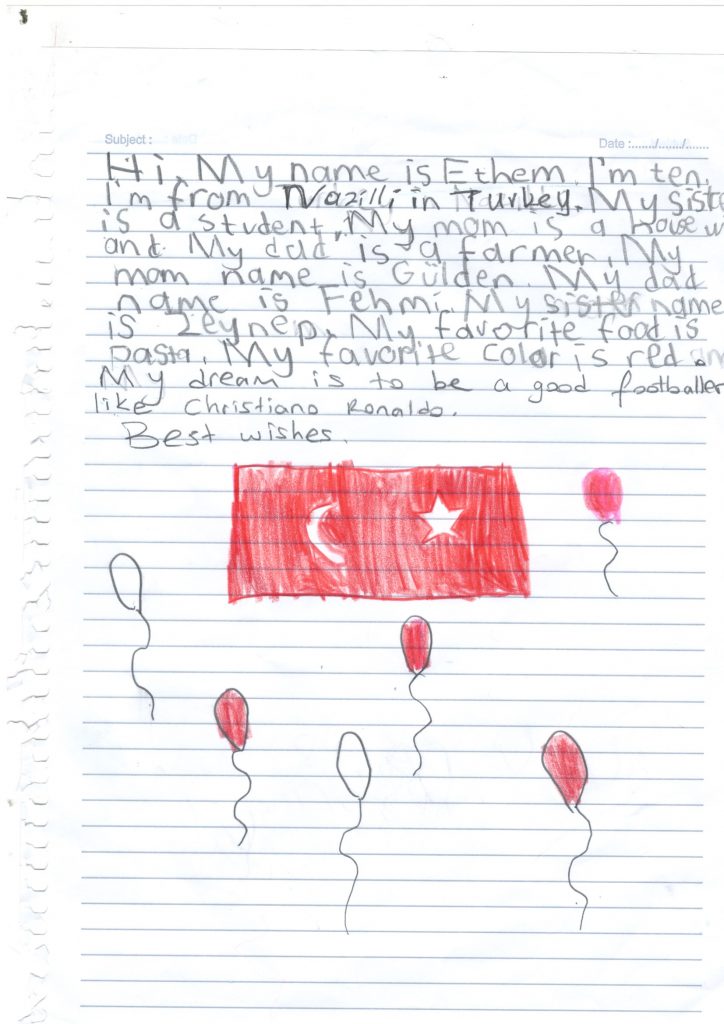 Subject :
Date :....../....../......
Hi, My name is Ethem. I'm ten.
I'm from Nazilli in Turkey. My siste
is a student. My mom is a house w
and My dad is a farmer. My
mom name is Gülden. My dad
name is Fehmi. My sister name
is Zeynep. My favorite food is
pasta. My favorite color is red.
My dream is to be a good footballer
like Christiano Ronaldo.
Best wishes.